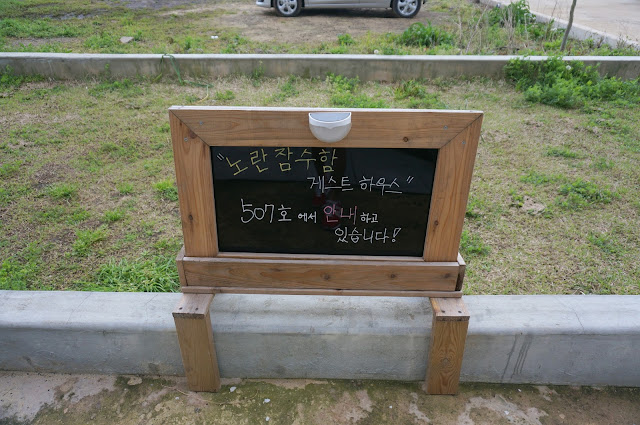 "노란잠수함
게스트 하우스"
507호 에서 안내 하고
있습니다!